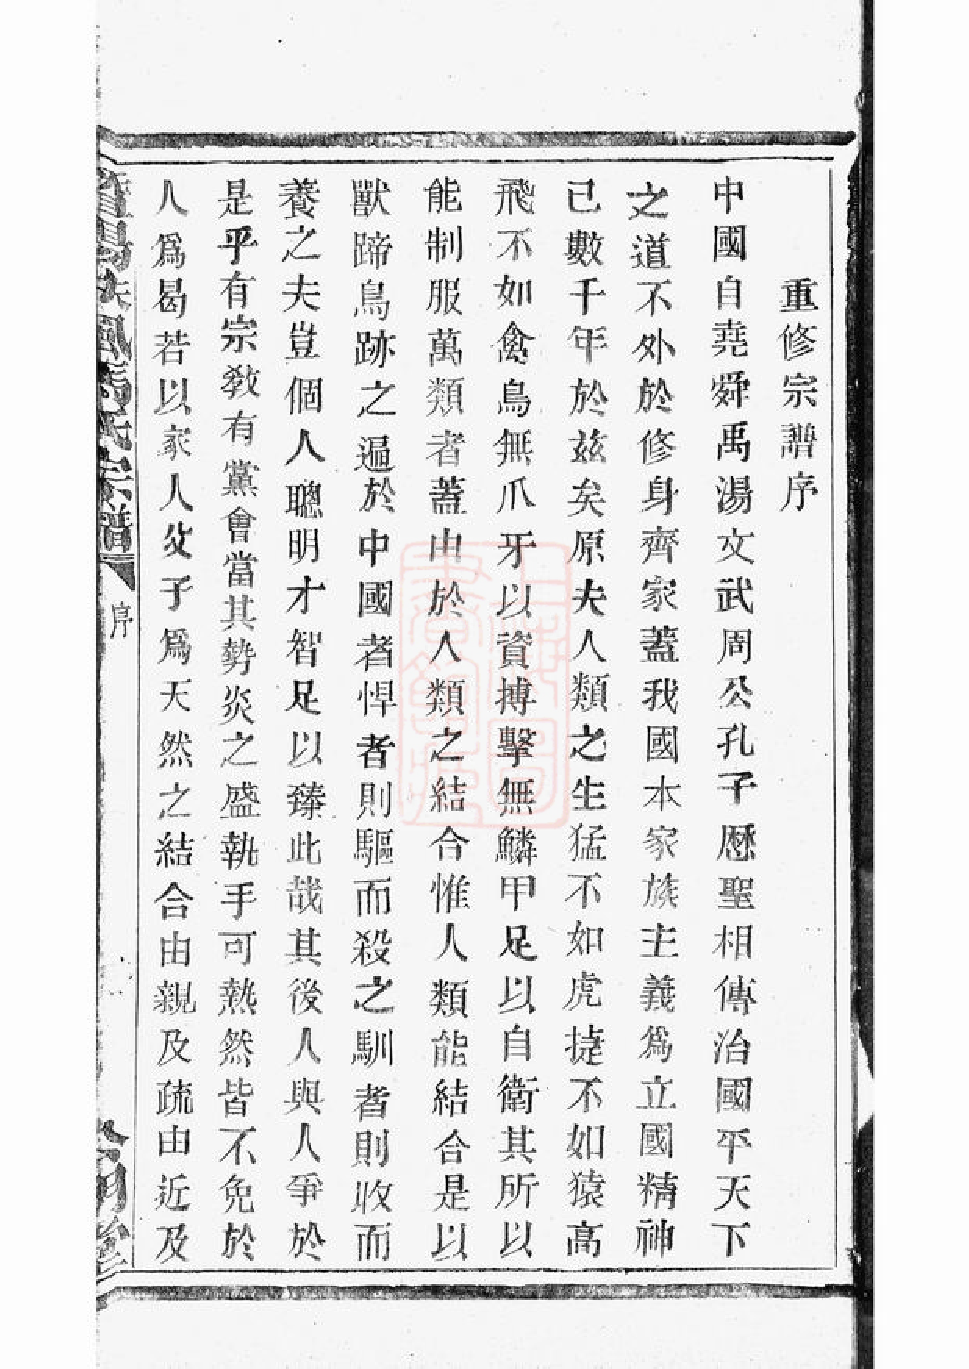 重修宗譜序
中國自堯舜禹湯文武周公孔子歷聖相傳治國平天下
之道不外於修身齊家蓋我國本家族主義為立國精神
已數千年於茲矣原夫人類之生猛不如虎捷不如猿高
飛不如禽鳥無爪牙以資搏擊無鱗甲足以自衛其所以
能制服萬類者蓋由於人類之結合惟人類能結合是以
獸蹄鳥跡之逼於中國者悍者則驅而殺之馴者則收而
養之夫豈個人聰明才智足以臻此哉其後人與人爭於
是乎有宗教有黨會當其勢炎之盛執手可熱然皆不免於
人爲曷若以家人父子爲天然之結合由親及疏由近及
扶風馬氏宗譜
序